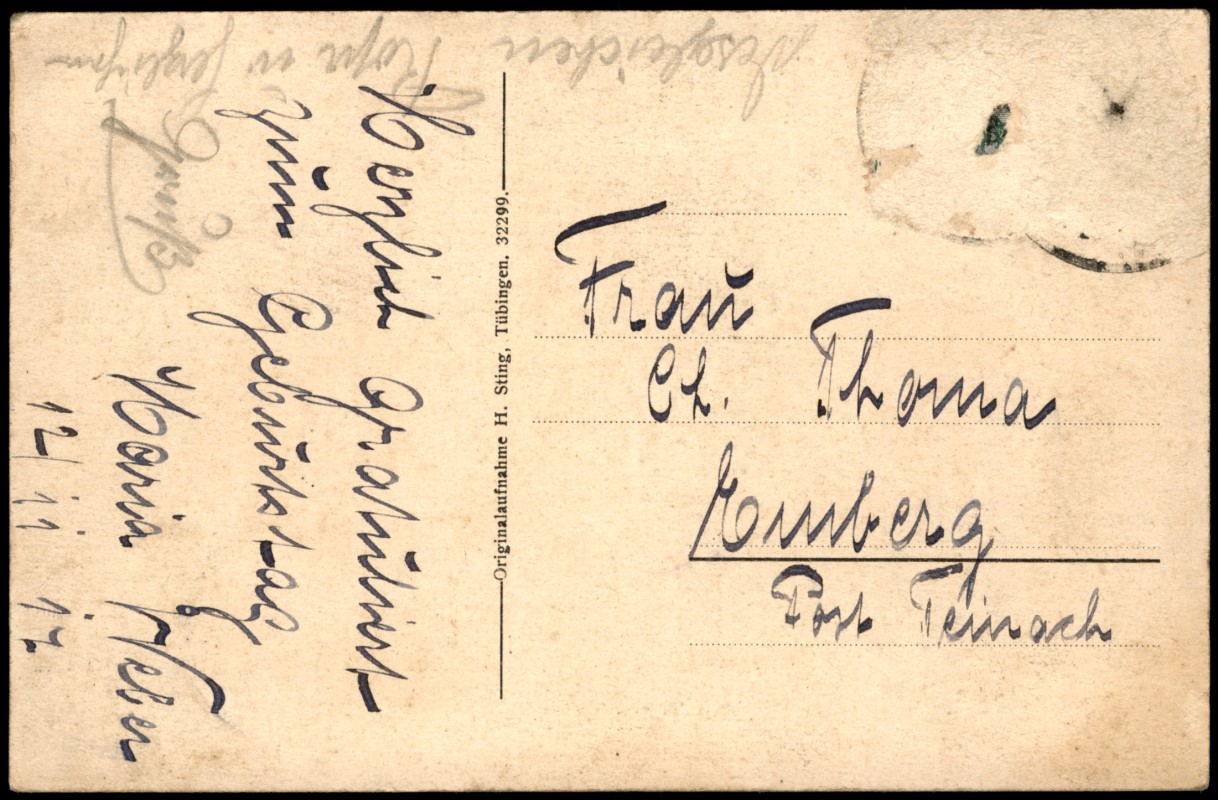 Herzlich Gratuliert
zum Geburtstag
Maria Weber
12/11 17
Originalaufnahme H. Sting, Tübingen. 32299.
Frau
Ch. Thoma
Emberg
Post Teinach
Desgleichen